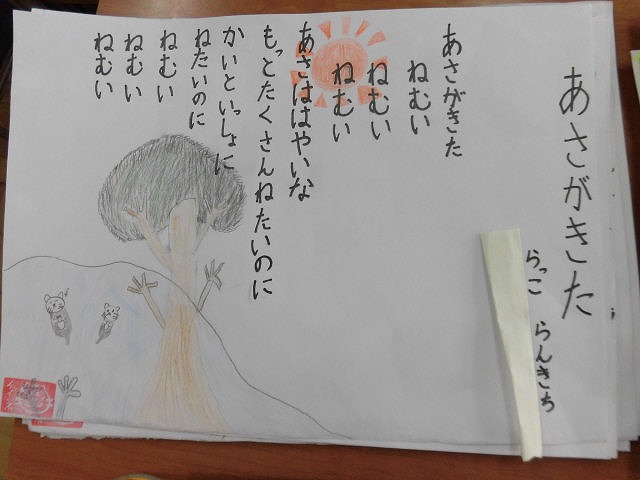 あさがきた
らっこ らんきち
あさがきた
ねむい
ねむい
ねむい
あさははやいな
もっとたくさんねたいのに
かいといっしょに
ねたいのに
ねむい
ねむい
ねむい